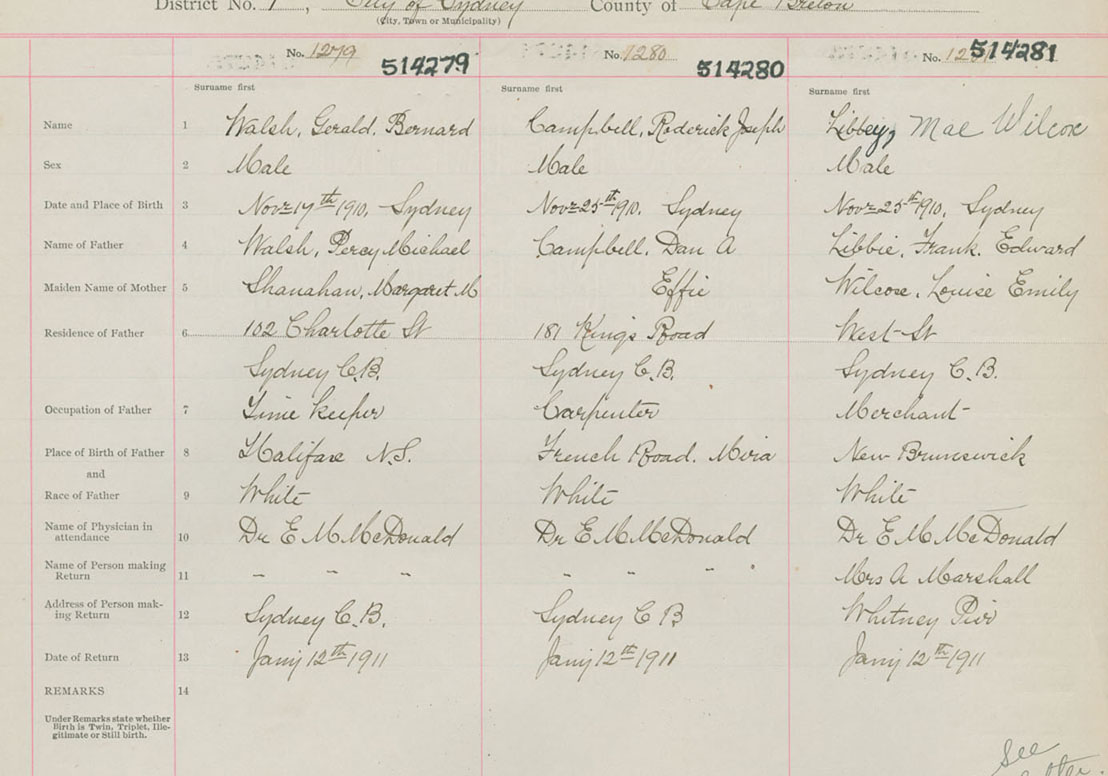 District No. 1, City of Sydney County of Cape Breton
(City, Town or Municipality)
No. 1279 514279 No. 1280 514280 No. 514281
Surname first Surname first Surname first
Name 1 Walsh, Gerald. Bernard Campbell, Roderick Joseph Libbey, Mae Wilcox
Sex 2 Male Male Male
Date and Place of Birth 3 Novr 17th 1910, Sydney Novr 25th 1910. Sydney Novr 25th 1910, Sydney
Name of Father 4 Walsh, Percy Michael Campbell, Dan A Libbie, Frank. Edward
Maiden Name of Mother 5 Shanahan, Margaret M Effie Wilcox, Louise Emily
Residence of Father 6 102 Charlotte St 181 Kings Road West St
Sydney C.B. Sydney C.B. Sydney C.B.
Occupation of Father 7 Time Keeper Carpenter Merchant
Place of Birth of Father 8 Halifax N.S. French Road. Mira New Brunswick
and
Race of Father 9 White White White
Name of Physician in
attendance 10 Dr E M McDonald Dr E M McDonald Dr E M McDonald
Name of Person making
Return 11 " " " " " " Mrs A Marshall
Address of Person mak-
ing Return 12 Sydney C.B. Sydney C B Whitney Pier
Date of Return 13 Jany 12th 1911 Jany 12th 1911 Jany 12th 1911
REMARKS 14
Under Remarks state whether
Birth is Twin, Triplet, Ille-
gitimate or Still birth.
See